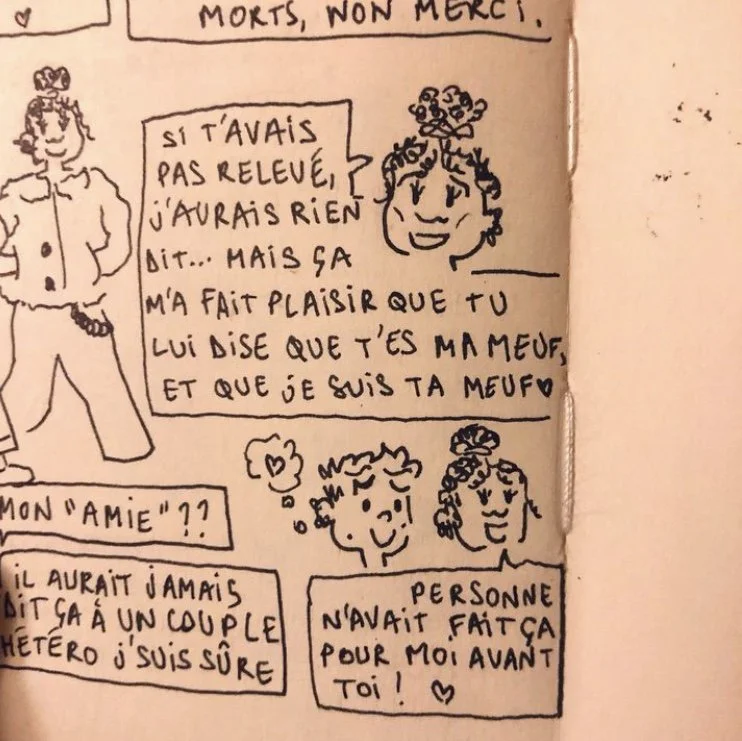 MORTS, NON MERCI.
SI T'AVAIS
PAS RELEVÉ,
J'AURAIS RIEN
DIT... MAIS ÇA
M'A FAIT PLAISIR QUE TU
LUI DISE QUE T'ES MA MEUF,
ET QUE JE SUIS TA MEUF♥
MON "AMIE"??
IL AURAIT JAMAIS
DIT ÇA À UN COUPLE
HÉTÉRO J'SUIS SÛRE
PERSONNE
N'AVAIT FAIT ÇA
POUR MOI AVANT
TOI ! ♡